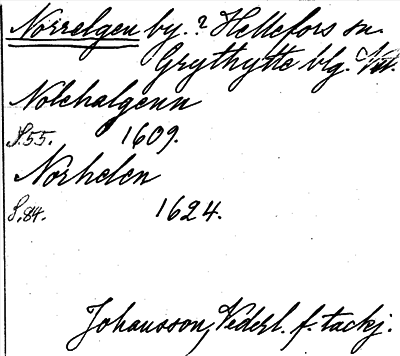 Norrelgen by.? Hellefors sn.
Grythytte blg.
Nolehalgenn
S.55. 1609.
Norhelen
S.84. 1624.
Johansson, Vederl. f. tackj.